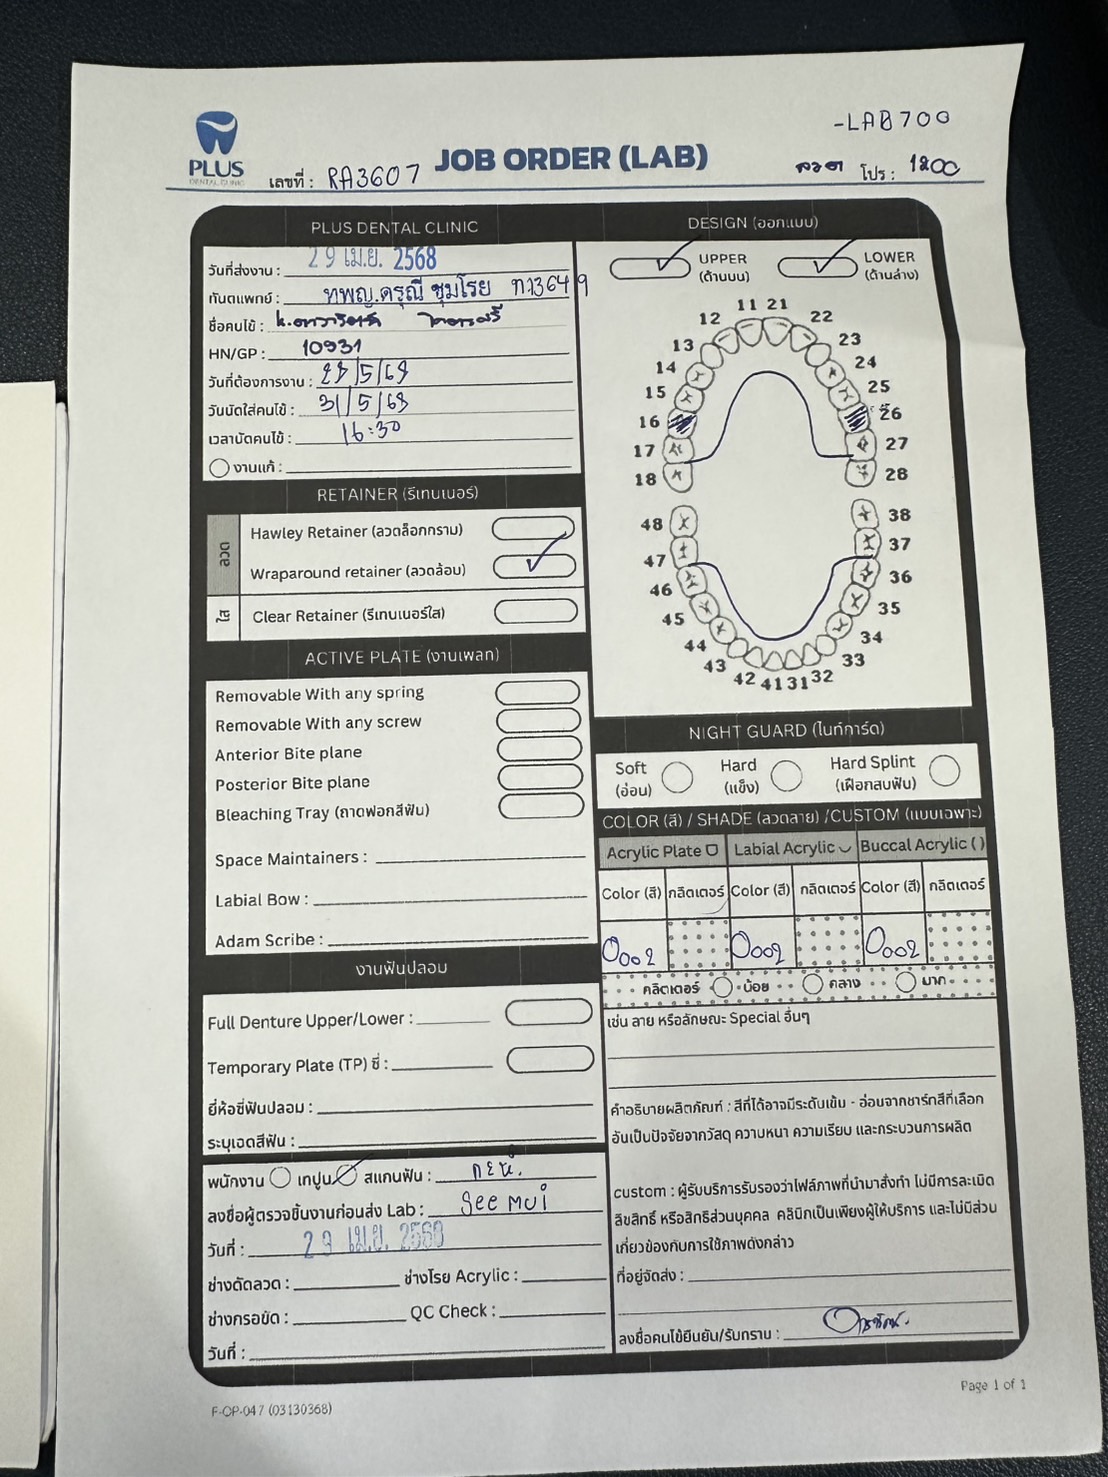 -LAB 700
PLUS
DENTAL CLINIC
เลขที่ : RA3607
JOB ORDER (LAB)
ลวด โปร : 1200
PLUS DENTAL CLINIC
วันที่ส่งงาน : 29 เม.ย. 2568
ทันตแพทย์ : ทพญ.ดรุณี ชุมโรย ท13649
ชื่อคนไข้ :
HN/GP : 10931
วันที่ต้องการงาน : 29/5/68
วันนัดใส่คนไข้ : 31/5/68
เวลานัดคนไข้ : 16:30
งานแก้ :
RETAINER (รีเทนเนอร์)
ลวด
Hawley Retainer (ลวดล็อกกราม)
Wraparound retainer (ลวดล้อม)
ใส
Clear Retainer (รีเทนเนอร์ใส)
ACTIVE PLATE (งานเพลท)
Removable With any spring
Removable With any screw
Anterior Bite plane
Posterior Bite plane
Bleaching Tray (ถาดฟอกสีฟัน)
Space Maintainers :
Labial Bow :
Adam Scribe :
งานฟันปลอม
Full Denture Upper/Lower :
Temporary Plate (TP) ซี่ :
ยี่ห้อซี่ฟันปลอม :
ระบุเฉดสีฟัน :
พนักงาน เทปูน สแกนฟัน :
ลงชื่อผู้ตรวจชิ้นงานก่อนส่ง Lab : See mui
วันที่ : 29 เม.ย. 2568
ช่างดัดลวด : ช่างโรย Acrylic :
ช่างกรอขัด : QC Check :
วันที่ :
DESIGN (ออกแบบ)
UPPER
(ด้านบน)
LOWER
(ด้านล่าง)
11 21
12 22
13 23
14 24
15 25
16 26
17 27
18 28
48 38
47 37
46 36
45 35
44 34
43 33
42 41 31 32
NIGHT GUARD (ไนท์การ์ด)
Soft
(อ่อน)
Hard
(แข็ง)
Hard Splint
(เฝือกสบฟัน)
COLOR (สี) / SHADE (ลวดลาย) /CUSTOM (แบบเฉพาะ)
Acrylic Plate Labial Acrylic Buccal Acrylic ( )
Color (สี) กลิตเตอร์ Color (สี) กลิตเตอร์ Color (สี) กลิตเตอร์
0002 0002 0002
กลิตเตอร์ น้อย กลาง มาก
เช่น ลาย หรือลักษณะ Special อื่นๆ
คำอธิบายผลิตภัณฑ์ : สีที่ได้อาจมีระดับเข้ม - อ่อนจากชาร์ทสีที่เลือก
อันเป็นปัจจัยจากวัสดุ ความหนา ความเรียบ และกระบวนการผลิต
custom : ผู้รับบริการรับรองว่าไฟล์ภาพที่นำมาสั่งทำ ไม่มีการละเมิด
ลิขสิทธิ์ หรือสิทธิส่วนบุคคล คลินิกเป็นเพียงผู้ให้บริการ และไม่มีส่วน
เกี่ยวข้องกับการใช้ภาพดังกล่าว
ที่อยู่จัดส่ง :
ลงชื่อคนไข้ยืนยัน/รับทราบ :
Page 1 of 1
F-OP-047 (03130368)